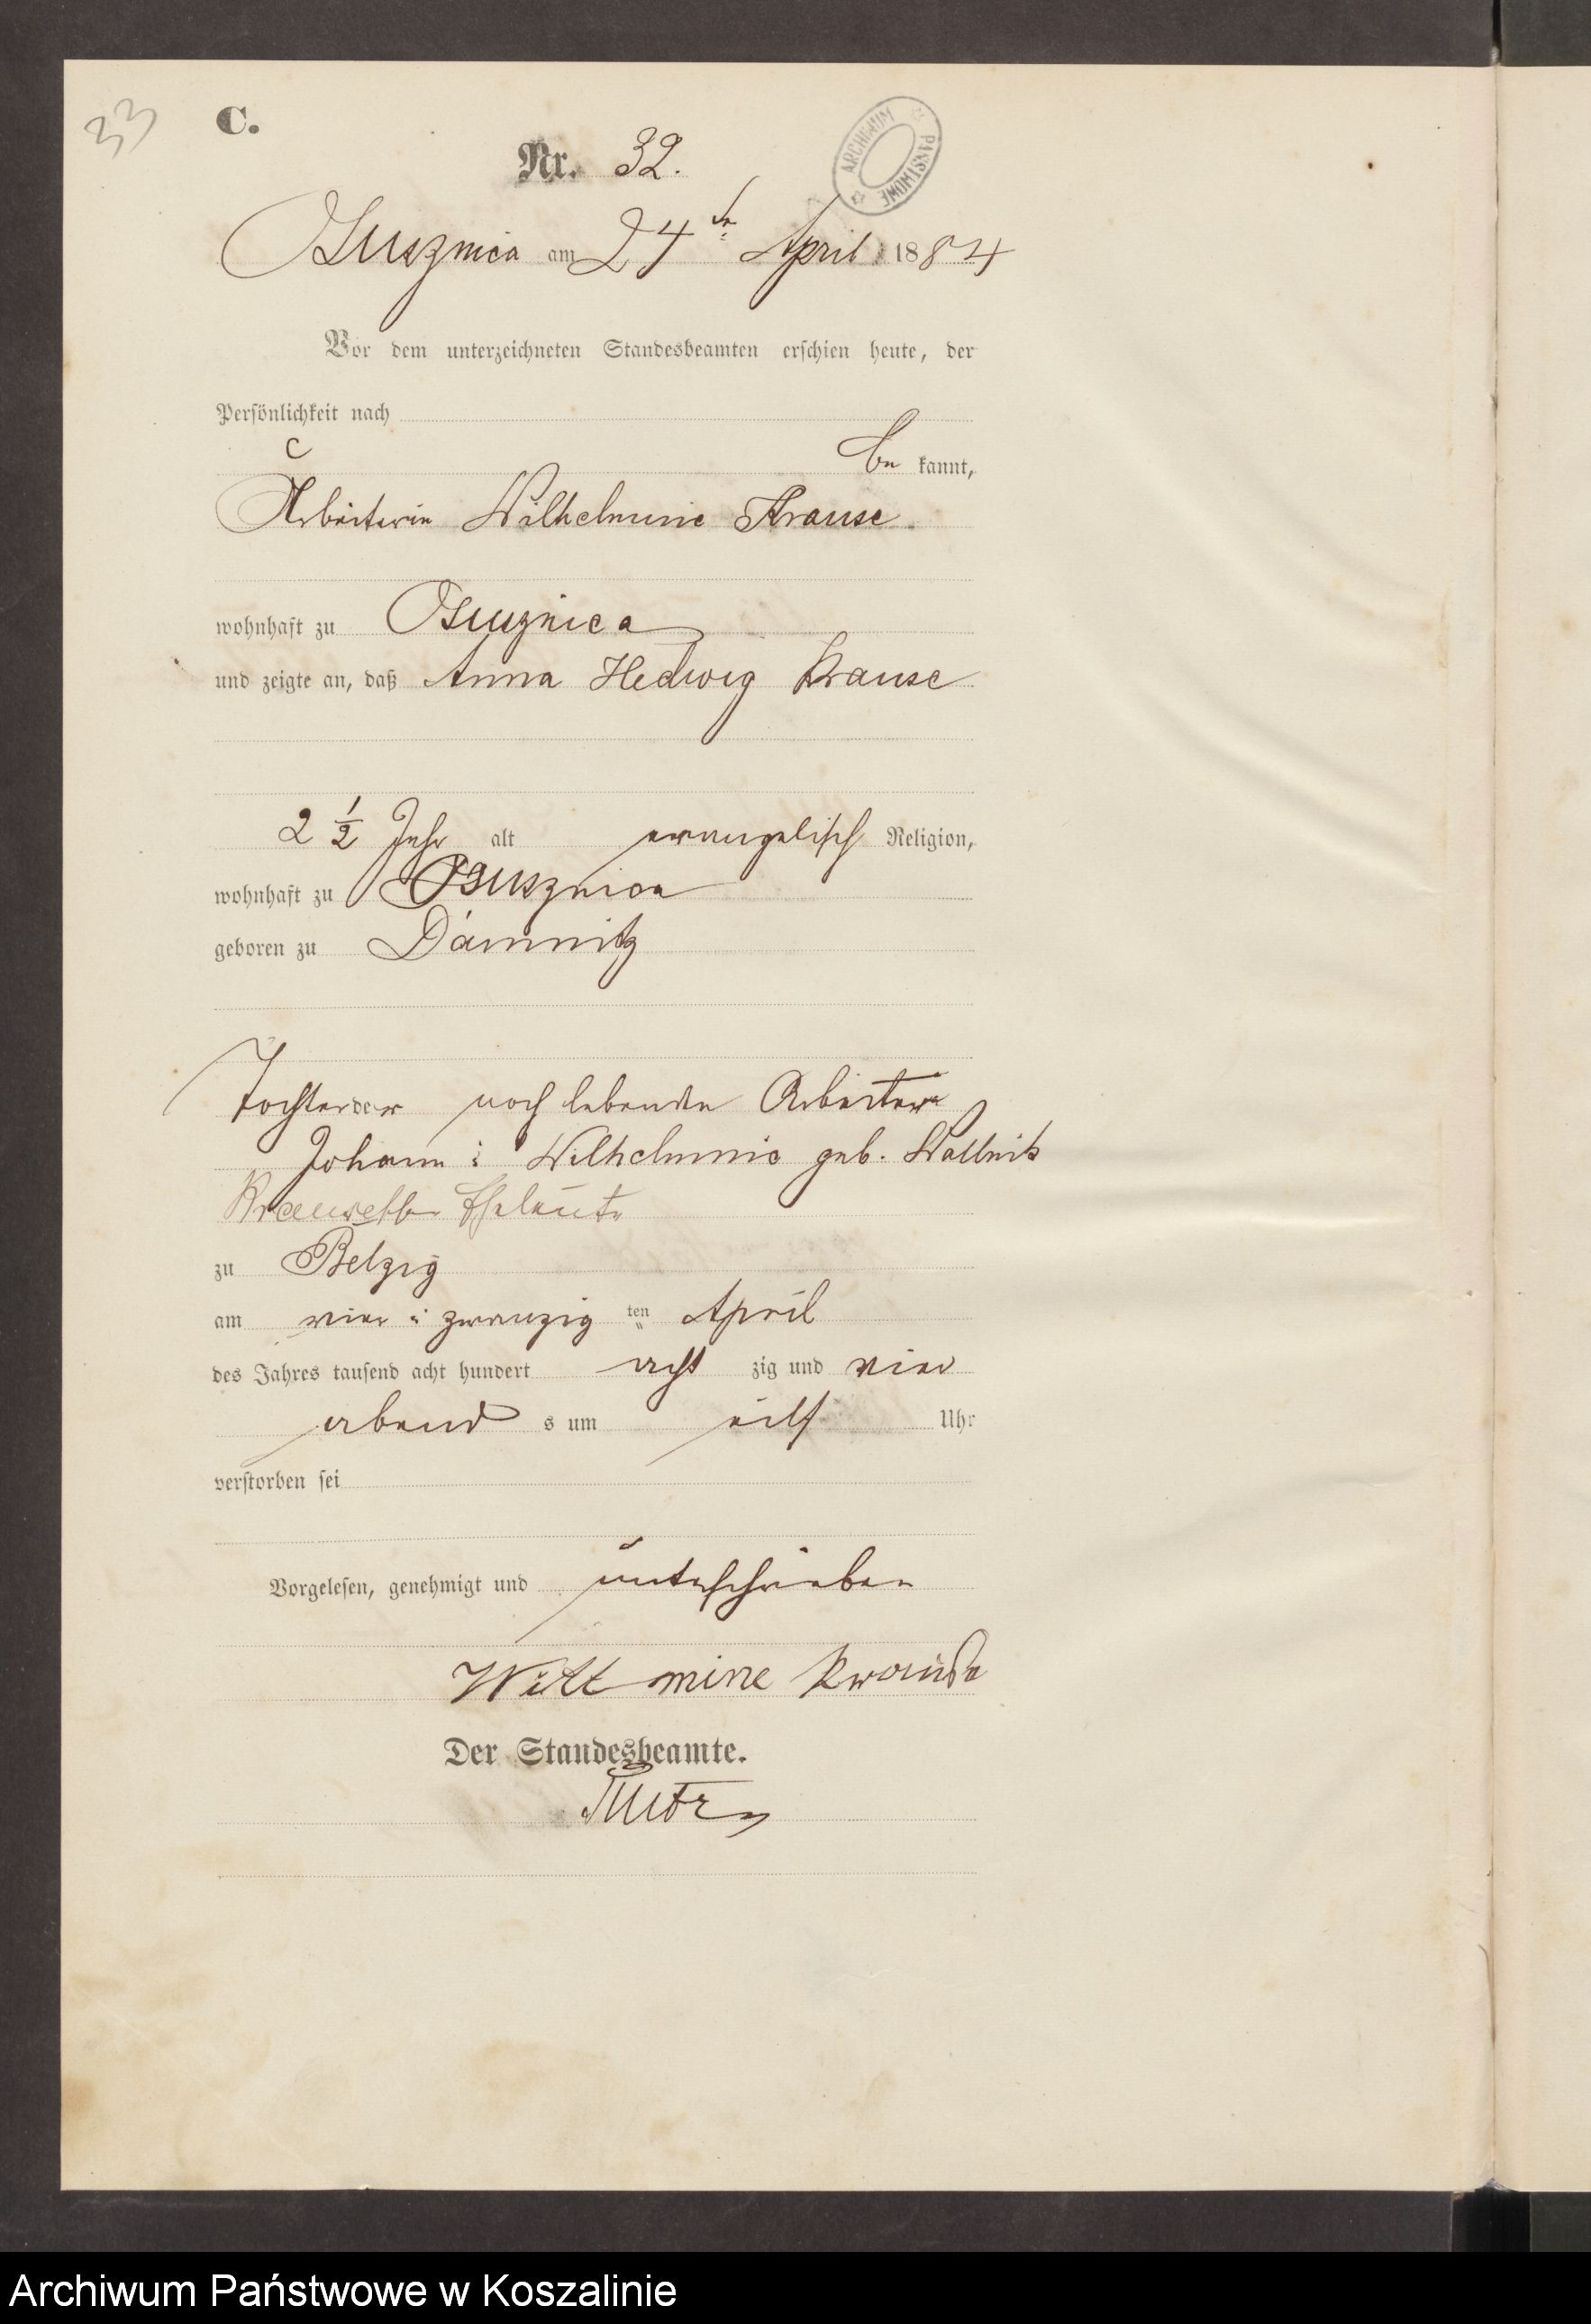 33
C.
ARCHIWUM PAŃSTWOWE
Nr. 32.
am 24 ten April 1884
Vor dem unterzeichneten Standesbeamten erschien heute, der
Persönlichkeit nach
be kannt,
Arbeiterin Wilhelmine Krause
wohnhaft zu
und zeigte an, daß Anna Hedwig Krause
2 1/2 Jahr alt evangelisch Religion,
wohnhaft zu
geboren zu Damnitz
Tochter der noch lebenden Arbeiter
Johann & Wilhelmine geb.
Eheleute
zu Belzig
am vier & zwanzig ten April
des Jahres tausend acht hundert acht zig und vier
abend s um eilf Uhr
verstorben sei
Vorgelesen, genehmigt und unterschrieben
Der Standesbeamte.
Archiwum Państwowe w Koszalinie